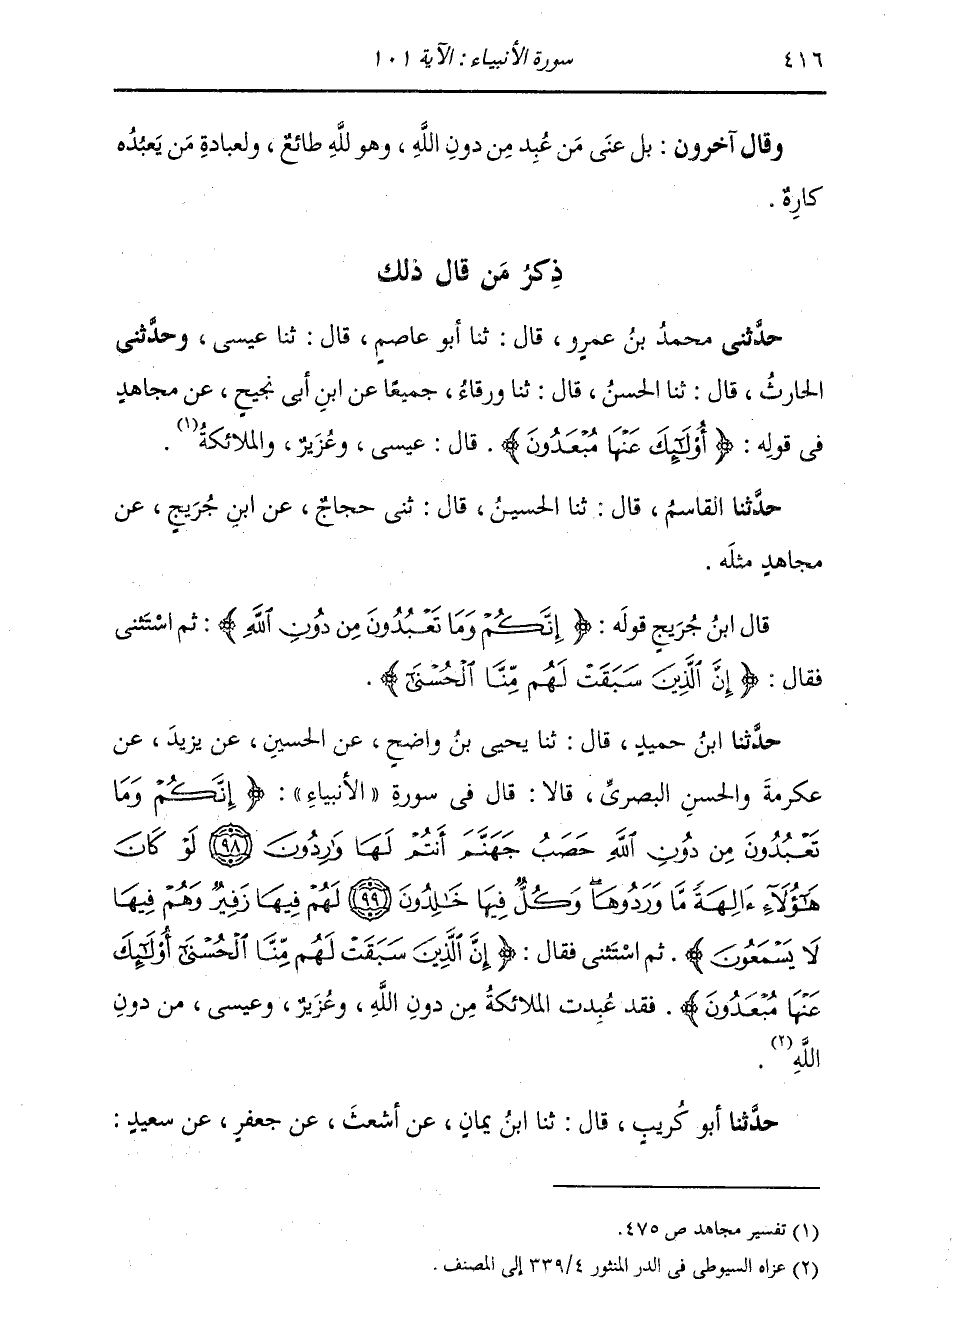 ٤١٦ سورة الأنبياء : الآية ١٠١
وقال آخرون : بل عنَى مَن عُبِد مِن دونِ اللَّهِ ، وهو للَّهِ طائعٌ ، ولعبادةِ مَن يَعبُدُه
كارِهٌ .
ذِكرُ مَن قال ذلك
حدَّثنى محمدُ بنُ عمرٍو ، قال : ثنا أبو عاصمٍ ، قال : ثنا عيسى ، وحدَّثنى
الحارثُ ، قال : ثنا الحسنُ ، قال : ثنا ورقاءُ ، جميعًا عن ابنِ أبى نجيحٍ ، عن مجاهدٍ
فى قولِه : ﴿ أُوْلَٰٓئِكَ عَنْهَا مُبْعَدُونَ ﴾ . قال : عيسى ، وعُزَيرٌ ، والملائكةُ(١) .
حدَّثنا القاسمُ ، قال : ثنا الحسينُ ، قال : ثنى حجاجٌ ، عن ابنِ جُرَيجٍ ، عن
مجاهدٍ مثلَه .
قال ابنُ جُرَيجٍ قولَه : ﴿ إِنَّكُمْ وَمَا تَعْبُدُونَ مِن دُونِ ٱللَّهِ ﴾ : ثم اسْتَثنى
فقال : ﴿ إِنَّ ٱلَّذِينَ سَبَقَتْ لَهُم مِّنَّا ٱلْحُسْنَىٰٓ ﴾ .
حدَّثنا ابنُ حميدٍ ، قال : ثنا يحيى بنُ واضحٍ ، عن الحسينِ ، عن يزيدَ ، عن
عكرمةَ والحسنِ البصرىِّ ، قالا : قال فى سورةِ «الأنبياءِ» : ﴿ إِنَّكُمْ وَمَا
تَعْبُدُونَ مِن دُونِ ٱللَّهِ حَصَبُ جَهَنَّمَ أَنتُمْ لَهَا وَٰرِدُونَ ﴿٩٨﴾ لَوْ كَانَ
هَٰٓؤُلَآءِ ءَالِهَةً مَّا وَرَدُوهَا ۖ وَكُلٌّ فِيهَا خَٰلِدُونَ ﴿٩٩﴾ لَهُمْ فِيهَا زَفِيرٌ وَهُمْ فِيهَا
لَا يَسْمَعُونَ ﴾ . ثم اسْتَثنى فقال : ﴿ إِنَّ ٱلَّذِينَ سَبَقَتْ لَهُم مِّنَّا ٱلْحُسْنَىٰٓ أُوْلَٰٓئِكَ
عَنْهَا مُبْعَدُونَ ﴾ . فقد عُبِدت الملائكةُ مِن دونِ اللَّهِ ، وعُزَيرٌ ، وعيسى ، من دونِ
اللَّهِ(٢) .
حدَّثنا أبو كُريبٍ ، قال : ثنا ابنُ يمانٍ ، عن أشعثَ ، عن جعفرٍ ، عن سعيدٍ :
(١) تفسير مجاهد ص ٤٧٥.
(٢) عزاه السيوطى فى الدر المنثور ٣٣٩/٤ إلى المصنف .